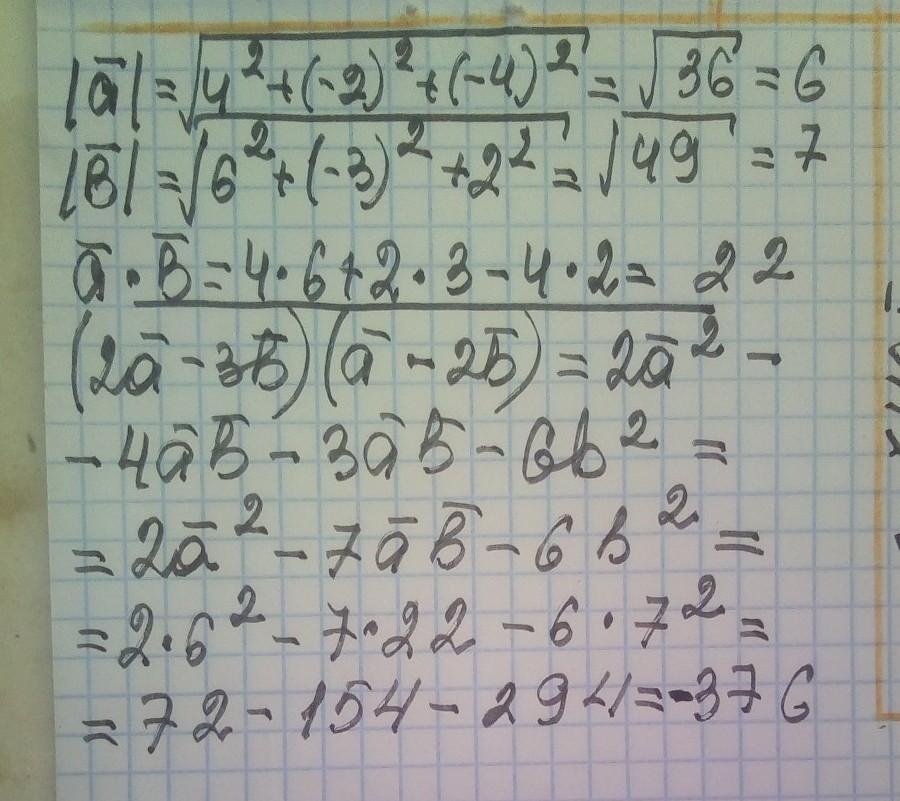 |a̅| = √(4² + (-2)² + (-4)²) = √36 = 6
|B̅| = √(6² + (-3)² + 2²) = √49 = 7
a̅ · B̅ = 4·6 + 2·3 - 4·2 = 22
(2a̅ - 3b̅)(a̅ - 2b̅) = 2a̅² -
- 4a̅b̅ - 3a̅b̅ - 6b² =
= 2a̅² - 7a̅b̅ - 6b² =
= 2·6² - 7·22 - 6·7² =
= 72 - 154 - 294 = -376